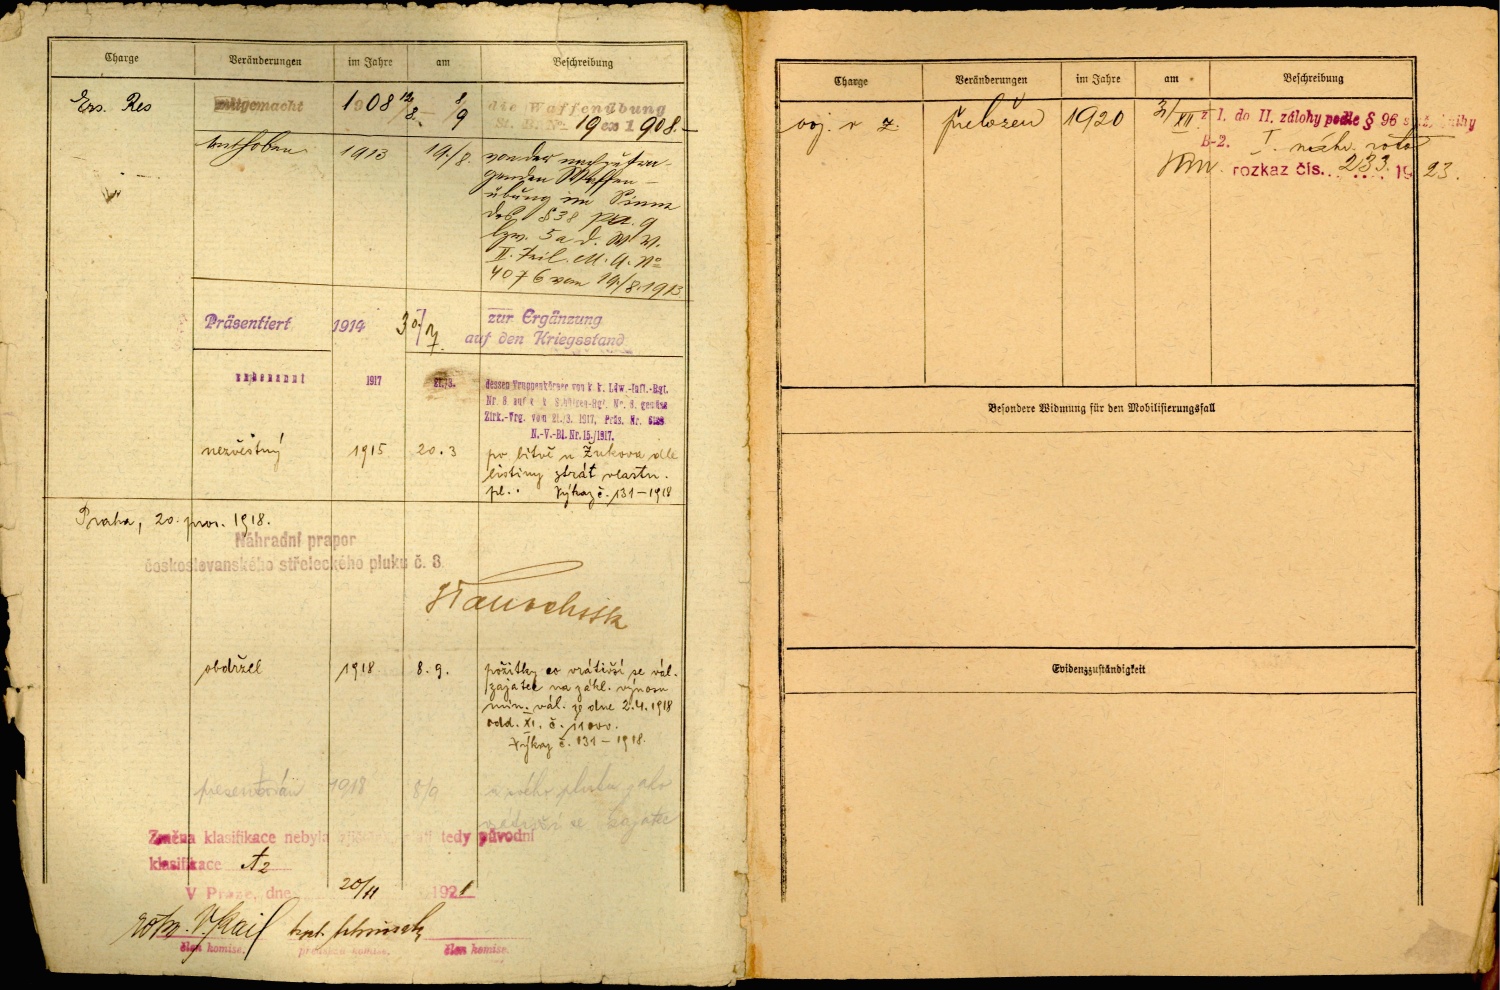 Charge Veränderungen im Jahre am Beschreibung
Ers. Res mitgemacht 1908 12/8.– 8/9 die Waffenübung
St. B. No. 19 ex 1908.–
enthoben 1913 19/8. von der nachzutra-
genden Waffen-
übung im Sinne
des § 38 pkt. 9
bzw. 5a d. W. V.
II. Teil. M. A. No
4076 vom 19/8.1913
Präsentiert 1914 30/7. zur Ergänzung
auf den Kriegsstand
1917 21./3. dessen Truppenkörper von k. k. Ldw.-Inft.-Rgt.
Nr. 8 auf k. k. Schützen-Rgt. Nr. 8. gemäss
Zirk.-Vrg. vom 21./3. 1917, Präs. Nr.
N.-V.-Bl. Nr. 15./1917.
nezvěstný 1915 20.3 po bitvě u Žukova dle
listiny ztrát vlastn.
pl.. Výkaz č. 131–1918
Praha, 20. pros. 1918.
Náhradní prapor
československého střeleckého pluku č. 8.
obdržel 1918 8.9. požitky co vrátivší se vál.
zajatec na zákl. výnosu
min. vál. ze dne 2.4.1918
odd. XI. č. 11000.
Výkaz č. 131–1918.
presentován 1918 8/9 u svého pluku jako
vrátivší se zajatec
Změna klasifikace nebyla tedy původní
klasifikace A2
V Praze, dne 20/11 1921
člen komise. předseda komise. člen komise.
Charge Veränderungen im Jahre am Beschreibung
voj. v z. přeložen 1920 31/XII z I. do II. zálohy podle § 96 knihy
B-2. I. náhr. rota
rozkaz čís. 233. 1923.
Besondere Widmung für den Mobilisierungsfall
Evidenzzuständigkeit